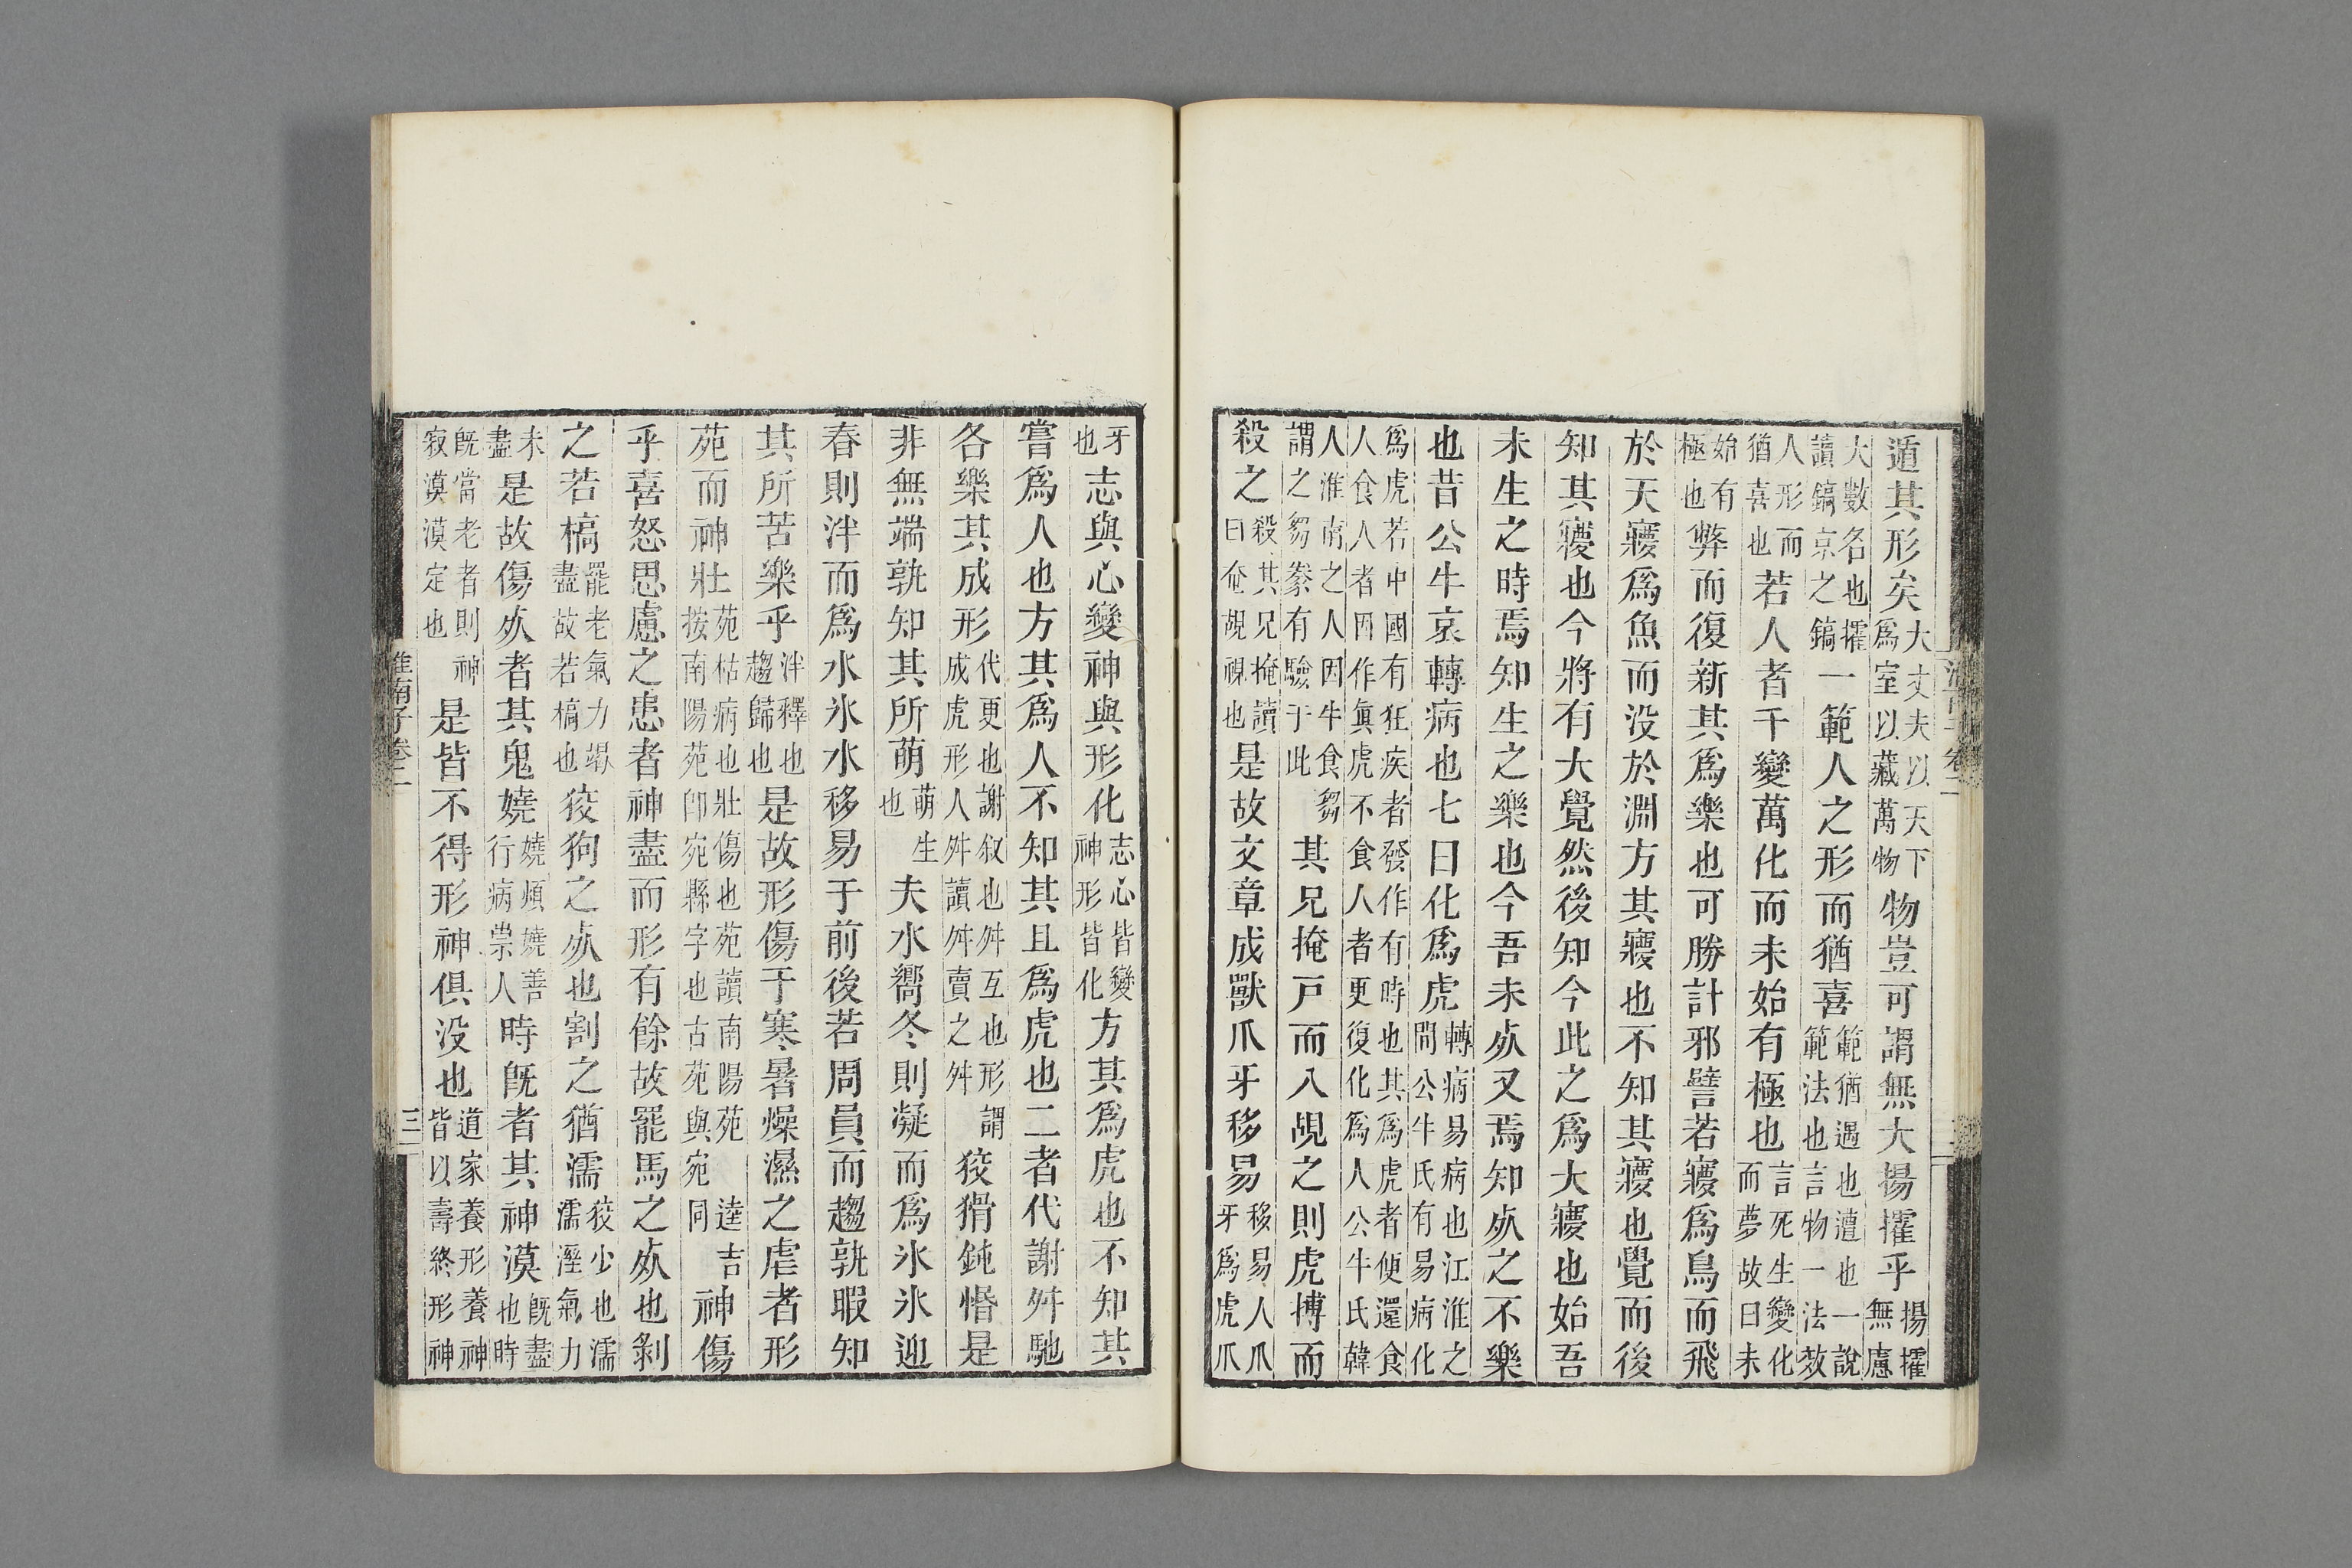 遁其形矣大丈夫以天下爲室以藏萬物物豈可謂無大揚攉乎揚攉無慮
大數名也攉讀鎬京之鎬一範人之形而猶喜範猶遇也遭也一說範法也言物一法效
人形而猶喜也若人者千變萬化而未始有極也言死生變化而夢故曰未
始有極也弊而復新其爲樂也可勝計邪譬若㝱爲鳥而飛
於天㝱爲魚而没於淵方其㝱也不知其㝱也覺而後
知其㝱也今將有大覺然後知今此之爲大㝱也始吾
未生之時焉知生之樂也今吾未死又焉知死之不樂
也昔公牛哀轉病也七日化爲虎轉病易病也江淮之間公牛氏有易病化
爲虎若中國有狂疾者發作有時也其爲虎者便還食人食人者因作眞虎不食人者更復化爲人公牛氏韓
人淮南之人因牛食芻謂之芻豢有驗于此其兄掩戸而入覘之則虎搏而
殺之殺其兄掩讀曰奄覘視也是故文章成獸爪牙移易移易人爪牙爲虎爪
牙也志與心變神與形化志心皆變神形皆化方其爲虎也不知其
嘗爲人也方其爲人不知其且爲虎也二者代謝舛馳
各樂其成形代更也謝叙也舛互也形謂成虎形人舛讀舛賣之舛狡猾鈍惛是
非無端孰知其所萌萌生也夫水嚮冬則凝而爲氷氷迎
春則泮而爲水氷水移易于前後若周員而趨孰暇知
其所苦樂乎泮釋也趨歸也是故形傷于寒暑燥濕之虐者形
苑而神壯苑枯病也壯傷也苑讀南陽苑按南陽苑卽宛縣字也古苑與宛同逵吉神傷
乎喜怒思慮之患者神盡而形有餘故罷馬之死也剝
之若槁罷老氣力竭盡故若槁也狡狗之死也割之猶濡狡少也濡濡溼氣力
未盡是故傷死者其鬼嬈嬈煩嬈善行病祟人時旣者其神漠旣盡也時
旣當老者則神寂漠漠定也是皆不得形神俱没也道家養形養神皆以壽終形神
淮南子卷二
三